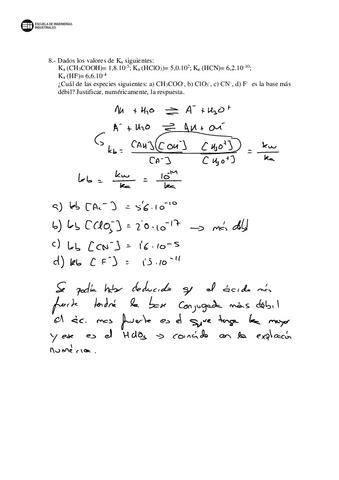 ESCUELA DE INGENIERÍAS
INDUSTRIALES
8.- Dados los valores de Kₐ siguientes:
Kₐ (CH₃COOH)= 1,8.10⁻⁵; Kₐ (HClO₃)= 5,0.10²; Kₐ (HCN)= 6,2.10⁻¹⁰;
Kₐ (HF)= 6,6.10⁻⁴
¿Cuál de las especies siguientes: a) CH₃COO⁻, b) ClO₃⁻, c) CN⁻, d) F⁻ es la base más
débil? Justificar, numéricamente, la respuesta.
AH + H₂O ⇌ A⁻ + H₃O⁺
A⁻ + H₂O ⇌ AH + OH⁻
kb = [AH][OH⁻] [H₃O⁺] / [A⁻] [H₃O⁺] = kw / ka
kb = kw / ka = 10⁻¹⁴ / ka
a) kb [Ac⁻] = 5'6·10⁻¹⁰
b) kb [ClO₃⁻] = 2'0·10⁻¹⁷ → más débil
c) kb [CN⁻] = 1'6·10⁻⁵
d) kb [F⁻] = 1'5·10⁻¹¹
Se podía haber deducido q/ el ácido más
fuerte tendrá la base conjugada más débil
El ác. más fuerte es el que tenga ka mayor
y ese es el HClO₃ → coincide con la explicación
numérica.